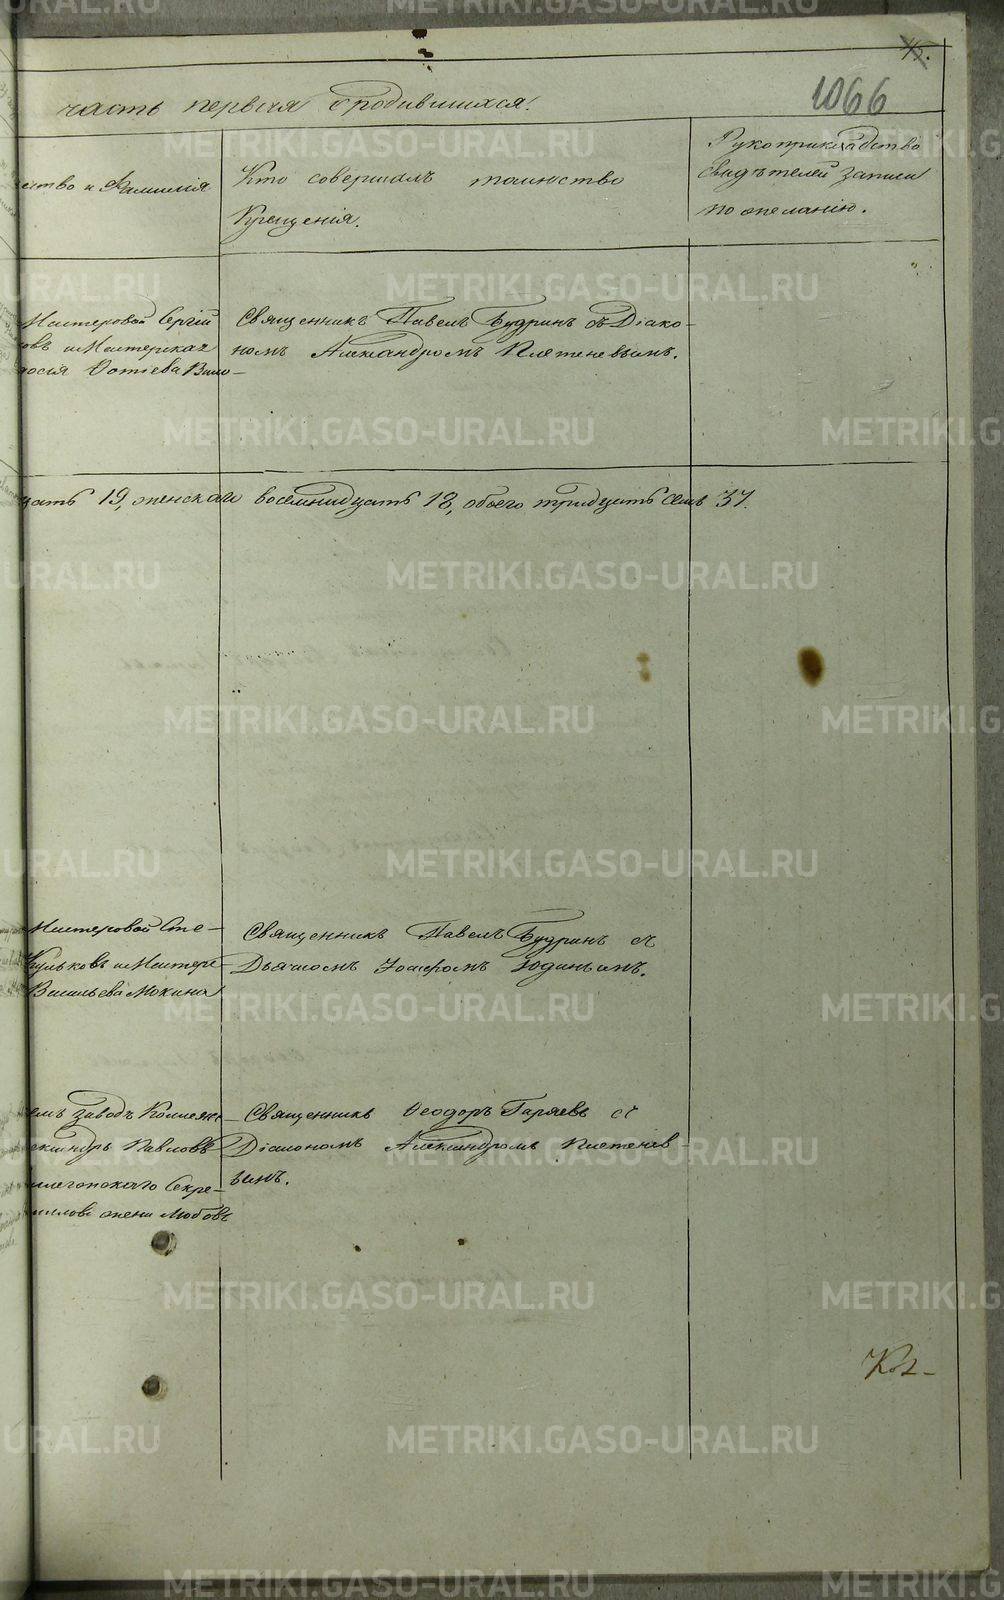 45.
1066
часть первая о родившихся.
ество и Фамилія
Кто совершалъ таинство
Крещенія.
Рукоприкладство
свидѣтелей записи
по желанію.
Мастеровой Сергій
овъ и Мастерская
Фотіева Вило-
Священникъ Павелъ Будринъ съ Діако-
номъ Александромъ Плетеневымъ.
цать 19, женскаго восемнадцать 18, обоего тридцать семь 37.
Мастеровой Сте-
Кульковъ и Мастерс-
Васильева Мокина
Священникъ Павелъ Будринъ съ
Дьячкомъ Іосифомъ Юдинымъ.
емъ заводѣ Коллежс-
ександръ Павловъ
ллегскаго Секре-
жена Любовь
Священникъ Ѳеодоръ Гаряевъ съ
Діакономъ Александромъ Плетенев-
ымъ.
METRIKI.GASO-URAL.RU